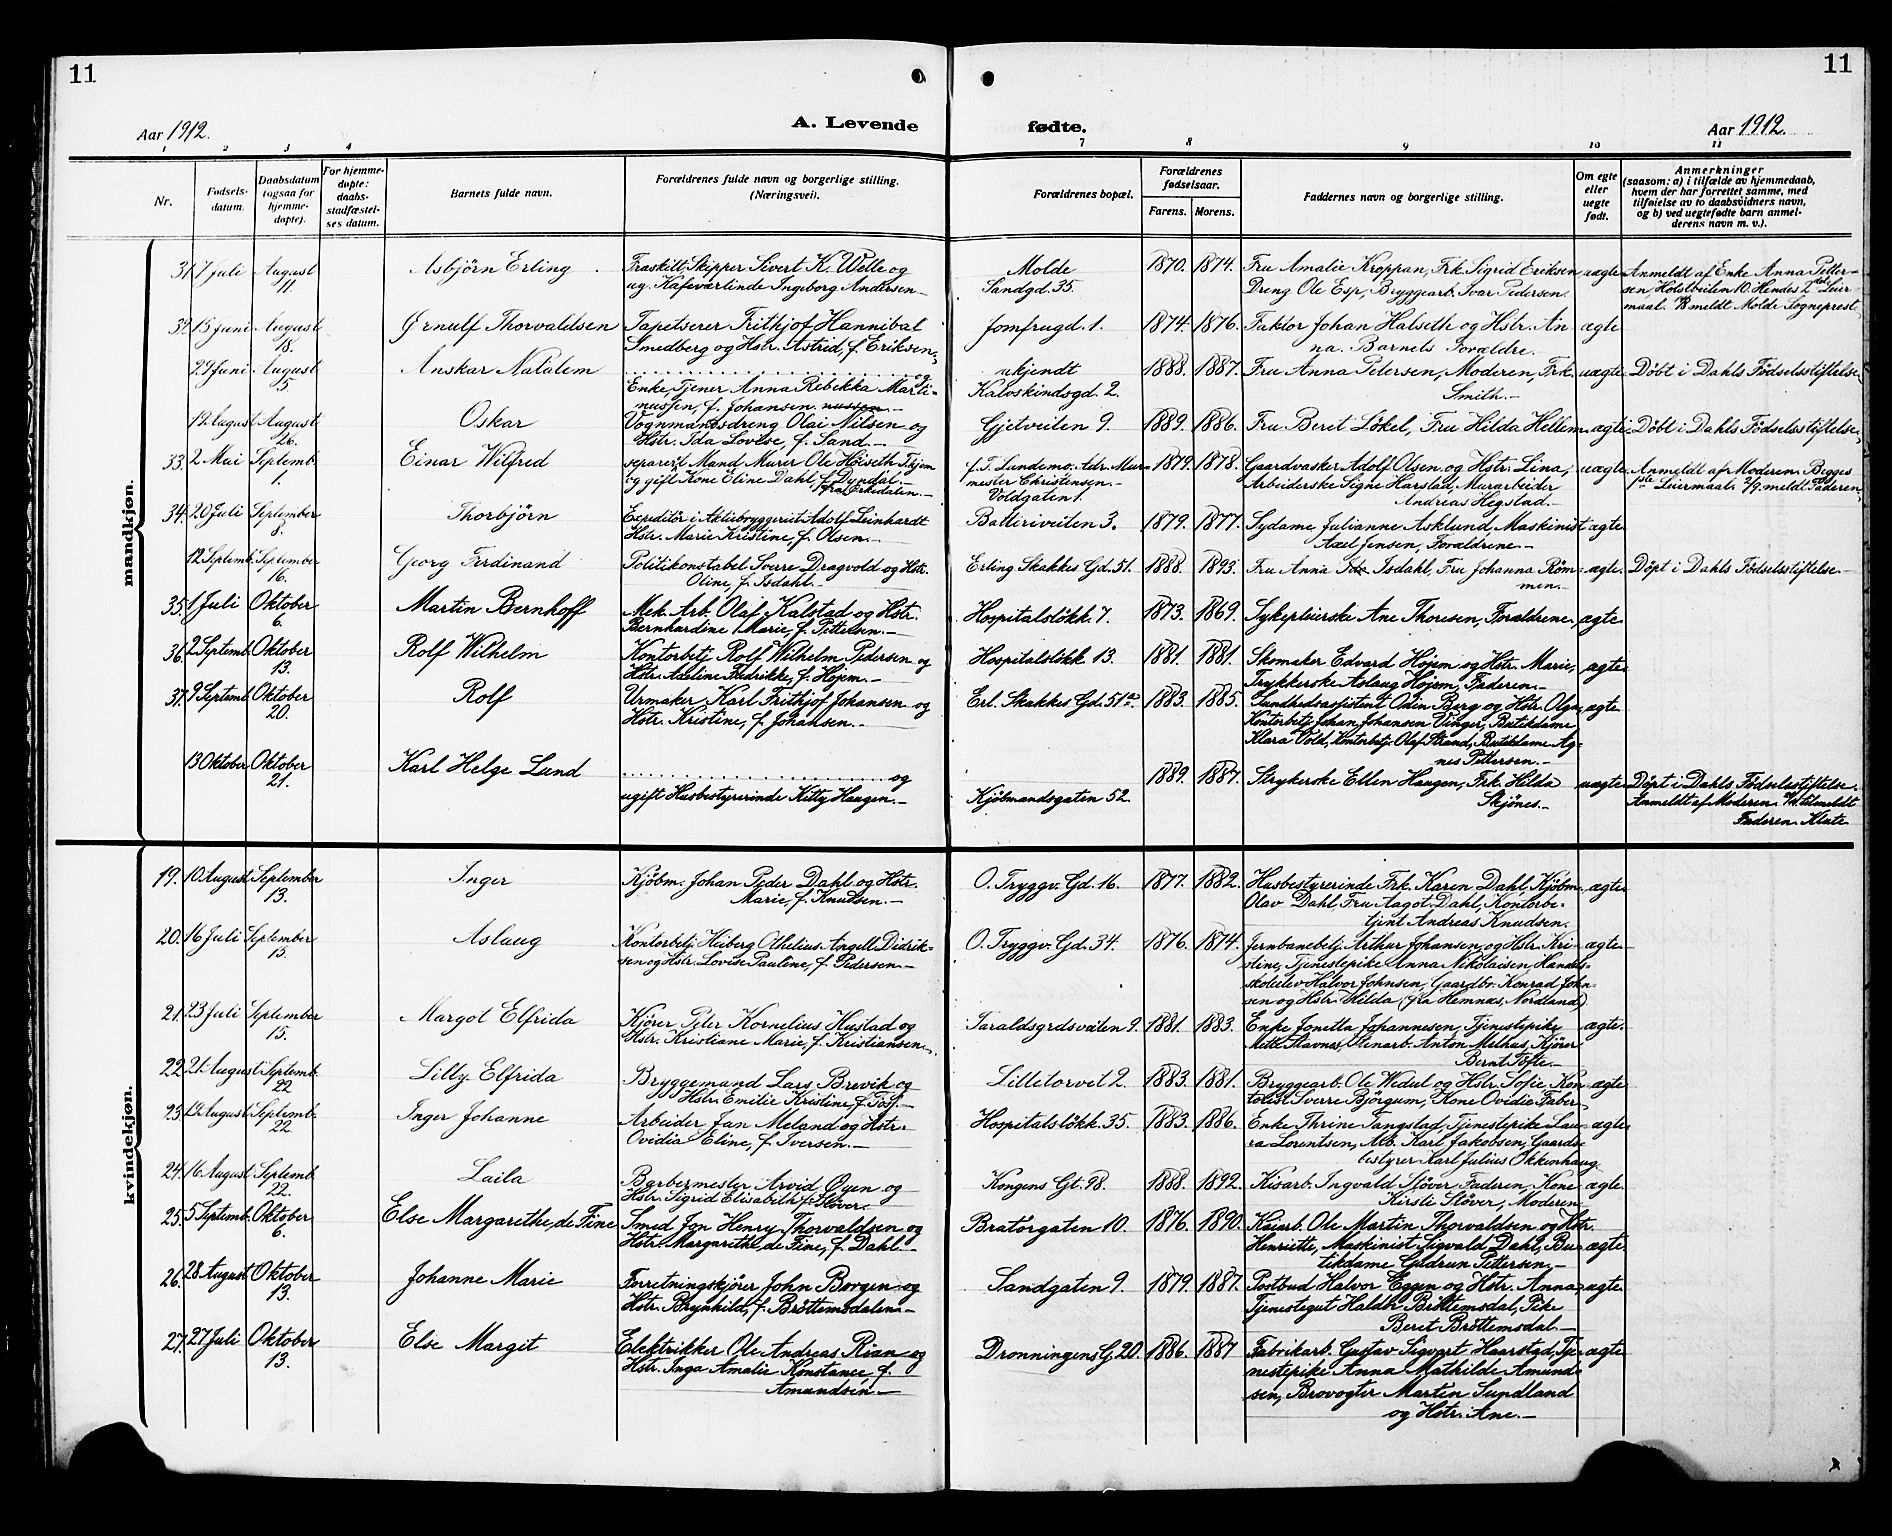 11
11
Aar 1912.
A. Levende
fødte.
Aar 1912.
1 2 3 4 7 8 9 10 11
Nr.
Fødsels-
datum.
Daabsdatum
(ogsaa for
hjemme-
døpte).
For hjemme-
døpte:
daabs-
stadfæstel-
ses datum.
Barnets fulde navn.
Forældrenes fulde navn og borgerlige stilling.
(Næringsvei).
Forældrenes bopæl.
Forældrenes
fødselsaar.
Farens. Morens.
Faddernes navn og borgerlige stilling.
Om egte
eller
uegte
født.
Anmerkninger
(saasom: a) i tilfælde av hjemmedaab,
hvem der har forrettet samme, med
tilføielse av to daabsvidners navn,
og b) ved uegtefødte barn anmel-
derens navn m. v.).
mandkjøn.
31. 7 Juli August 11. Asbjörn Erling Fraskilt Skipper Sivert K. Welle og
ug. Kafeværtinde Ingeborg Andersen
Molde
Sandgd. 35.
1870. 1874. Fru Amalie Kroppan, Frk. Sigrid Eriksen
Dreng Ole Esp, Bryggearb. Ivar Pedersen.
uægte Anmeldt af Enke Anna Petter-
sen Hotelveiten 10. Hendes 2det Leier-
maal. meldt Molde Sogneprest
32. 15 Juni August 18. Ørnulf Thorvaldsen Tapetserer Frithjof Hannibal
Smedberg og Hstr. Astrid, f. Eriksen
Jomfrugd. 1. 1874. 1876. Faktor Johan Halseth og Hstr. An-
na. Barnets Forældre.
ægte
29 Juni August 5. Anskar Natalem og
Enke, Tjener Anna Rebekka Marti-
nussen, f. Johansen.
ukjendt
Kalvskindsgd. 2.
1888. 1887. Fru Anna Petersen, Moderen, Frk.
Smith.
uægte Döbt i Dahls Födselsstiftelse
19. August August 26. Oskar Vognmandsdreng Olai Nilsen og
Hstr. Ida Lovise, f. Sand.
Gjetveiten 9. 1889. 1886. Fru Beret Lökel, Fru Hilda Hellem ægte Döbt i Dahls Födselsstiftelse
33. 2 Mai Septemb. 1. Einar Wilfred separert Mand Murer Ole Höiseth
og gift Kone Eline Dahl, f. Dyndal
fra Orkedalen.
f. T. Lundemo. Adr. Mur-
mester Christensen.
Voldgaten 1.
1879. 1878. Gaardvasker Adolf Olsen og Hstr. Lina,
Arbeiderske Signe Harstad, Murarbeider
Andreas Hegstad.
uægte Anmeldt af Moderen. Begges
1ste Leiermaal. 2/9 meldt Faderen
34. 20 Juli September 8. Thorbjörn Expeditör i Aktiebryggeriet Adolf Leinhardt
Hstr. Marie Kristine, f. Olsen.
Batteriveiten 3. 1879. 1877. Sydame Julianne Asklund, Maskinist
Axel Jensen, Forældrene.
ægte
12 Septemb. September 16. Georg Ferdinand Politikonstabel Sverre Dragvold og Hstr.
Oline, f. Isdahl.
Erling Skakkes Gd. 51. 1888. 1893. Fru Anna Isdahl, Fru Johanna Röm-
men.
ægte. Döpt i Dahls Födselsstiftelse.
35. 1 Juli Oktober 6. Martin Bernhoff Mek. Arb. Olaf Kalstad og Hstr.
Bernhardine Marie, f. Pettersen.
Hospitalslökk. 7. 1873. 1869. Sykepleierske Ane Thoresen, Forældrene. ægte.
36. 2 Septemb. Oktober 13. Rolf Wilhelm Kontorbetj. Rolf Wilhelm Pedersen og
Hstr. Adeline Fredrikke, f. Hojem.
Hospitalslökk 13. 1881. 1881. Skomaker Edvard Hojem og Hstr. Marie,
Trykkerske Aslaug Hojem, Faderen.
ægte
37. 9 Septemb. Oktober 20. Rolf Urmaker Karl Frithjof Johansen og
Hstr. Kristine, f. Johansen.
Erl. Skakkes Gd. 51a 1883. 1885. Sundhedsassistent Odin Berg og Hstr. Olga,
Kontorbetj. Johan Johansen Vinger, Butikdame
Klara Vold, Kontorbetj. Olaf Strand, Butikdame Ag-
nes Pettersen.
ægte
13 Oktober Oktober 21. Karl Helge Lund og
ugift Husbestyrerinde Kitty Haugen.
Kjöbmandsgaten 52. 1889. 1887. Strykerske Ellen Haugen, Frk. Hilda
Skjönes.
uægte Döpt i Dahls Födselsstiftelse.
Anmeldt af Moderen. tilmeldt
Faderen.
kvindekjøn.
19. 10 August September 13. Inger Kjöbm. Johan Peder Dahl og Hstr.
Marie, f. Knudsen.
O. Tryggv. Gd. 16. 1877. 1882. Husbestyrerinde Frk. Karen Dahl, Kjöbm.
Olav Dahl, Fru Aagot Dahl, Kontorbe-
tjent Andreas Knudsen.
ægte
20. 16 Juli September 15. Aslaug Kontorbetj. Heiberg Othelius Angell Didrik-
sen og Hstr. Lovise Pauline, f. Pedersen.
O. Tryggv. Gd. 34. 1876. 1874. Jernbanebetj. Arthur Johansen og Hstr. Kri-
stine, Tjenestepike Anna Nikolaisen, Handels-
skoleelev Halvor Johnsen, Gaardbr. Konrad John-
sen og Hstr. Hilda (fra Hemnæs, Nordland)
ægte
21. 23 Juli September 15. Margot Elfrida Kjörer Peter Kornelius Hustad og
Hstr. Kristiane Marie, f. Kristiansen
Taraldsgrdsveiten 9. 1881. 1883. Enke Jonetta Johannesen, Tjenestepike
Mette Stavnes, Stenarb. Anton Melhus, Kjörer
Bernt Tofte.
ægte.
22. 21. August Septemb. 22 Lilly Elfrida Bryggemand Lars Brevik og
Hstr. Emilie Kristine, f.
Lilletorvet 2. 1883. 1881. Bryggearb. Ole Wedul og Hstr. Sofie, Kon-
torist Sverre Björgum, Kone Ovidia Faber
ægte
23. August Septemb. 22 Inger Johanne Arbeider Jan Meland og Hstr.
Ovidia Eline, f. Iversen.
Hospitalslökk. 35. 1883. 1886. Enke Thrine Tangstad, Tjenestepike Lau-
ra Lorentsen, Arb. Karl Jakobsen, Gaards-
bestyrer Karl Julius Okkenhaug
ægte
24. 16 August Septemb. 22. Laila Barbermester Arvid Oyen og
Hstr. Sigrid Elisabeth f. Stöver.
Kongens Gt. 98. 1888. 1892. Kisarb. Ingvald Stöver, Faderen, Kone
Kirsti Stöver, Moderen
ægte
25. 5 Septemb. Oktober 6. Else Margarethe de Fine Smed Jon Henry Thorvaldsen og
Hstr. Margarethe de Fine, f. Dahl.
Bratörgaten 10. 1876. 1890. Kaiarb. Ole Martin Thorvaldsen og Hstr.
Henriette, Maskinist Sigvald Dahl, Bu-
tikdame Gudrun Pettersen.
ægte
26. 28 August Oktober 13. Johanne Marie Forretningskjörer John Borgen og
Hstr. Brynhild, f. Bröttemsdalen
Sandgaten 9. 1879. 1887. Postbud Halvor Eggen og Hstr. Anna
Tjenestegut Haldor Bröttemsdal, Pike
Beret Bröttemsdal.
ægte
27. 27 Juli Oktober 13. Else Margit Elektrikker Ole Andreas Rian og
Hstr. Inga Amalie Konstance, f.
Amundsen
Dronningens G. 20. 1886. 1887 Fabrikarb. Gustav Sigvart Haarstad, Tje-
nestepike Anna Mathilde Amund-
sen, Brovogter Marten Sundland
og Hstr. Ane.
ægte